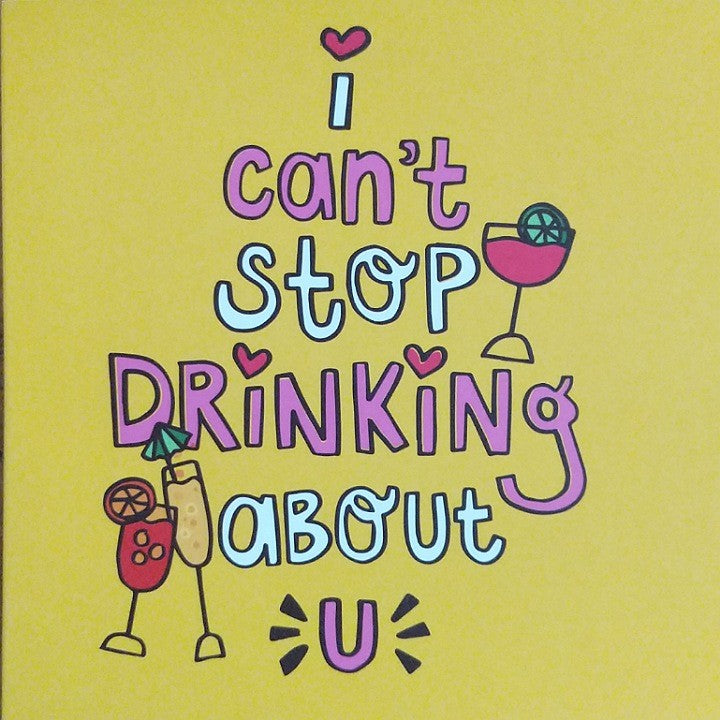 i
can't
stop
DRiNKiNg
aBOUt
U